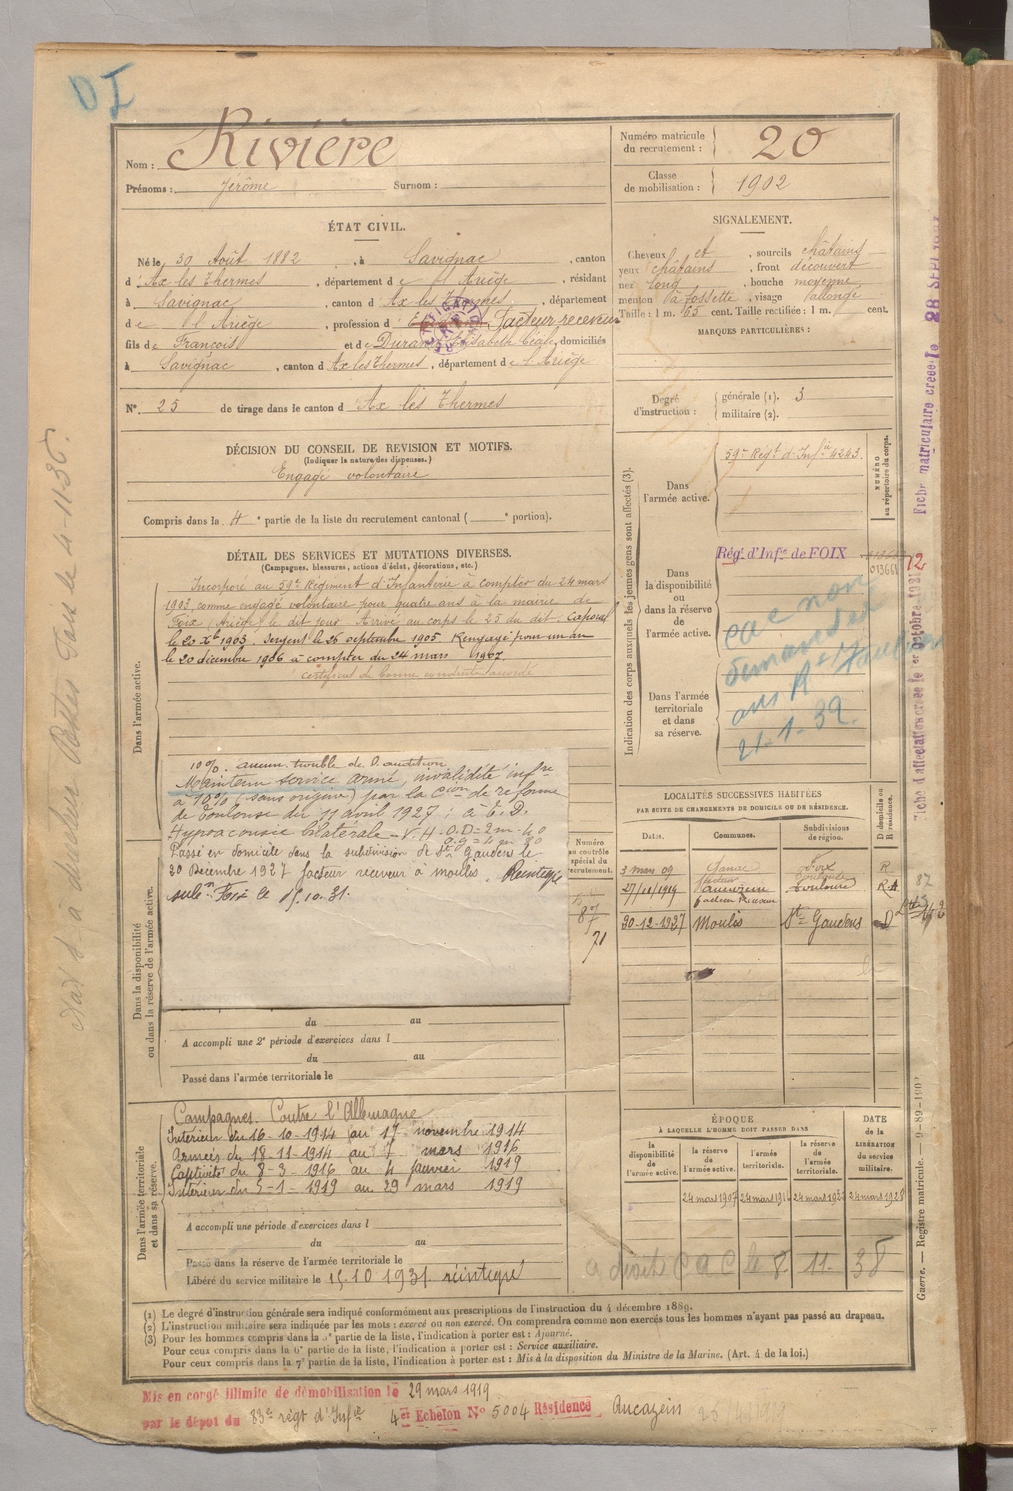 DI
Nom : Rivière
Prénoms : Jérôme Surnom :
Numéro matricule du recrutement : 20
Classe de mobilisation : 1902
ÉTAT CIVIL.
Né le 30 Août 1882, à Savignac, canton
d' Ax les Thermes, département de l'Ariège, résidant
à Savignac, canton d' Ax les Thermes, département
de l'Ariège, profession d Facteur-receveur
fils de François et de Durand Elisabeth domiciliés
à Savignac, canton d' Ax les Thermes, département de l'Ariège
N°. 25 de tirage dans le canton d' Ax les Thermes
SIGNALEMENT.
Cheveux et, sourcils châtains
yeux châtains, front découvert
nez long, bouche moyenne,
menton à fossette, visage allongé
Taille : 1 m. 63 cent. Taille rectifiée : 1 m. cent.
MARQUES PARTICULIÈRES :
Degré d'instruction : générale (1). 3
militaire (2).
DÉCISION DU CONSEIL DE REVISION ET MOTIFS.
(Indiquer la nature des dispenses.)
Engagé volontaire
Compris dans la 4e partie de la liste du recrutement cantonal ( e portion).
DÉTAIL DES SERVICES ET MUTATIONS DIVERSES.
(Campagnes, blessures, actions d'éclat, décorations, etc.)
Dans l'armée active.
Incorporé au 59e Régiment d'Infanterie à compter du 24 mars
1903, comme engagé volontaire pour quatre ans à la mairie de
Foix (Ariège) le dit jour. Arrivé au corps le 25 du dit. Caporal
le 20 Xbre 1903. Sergent le 26 septembre 1905. Rengagé pour un an
le 20 décembre 1906 à compter du 24 mars 1907.
certificat de bonne conduite accordé
10%. aucun trouble de l'audition
Maintenu service armé, invalidité infre
à 10% (sans origine) par la Cion de réforme
de Toulouse du 11 avril 1927 :
Hypoacousie bilatérale - V.H - O.D = 2m - 40
Passé en domicile dans la subdivision de St Gaudens le
30 Décembre 1927 facteur receveur à Moulis. Réintégré
subon Foix le 15.10.31.
Dans la disponibilité
ou dans la réserve de l'armée active.
Numéro
au contrôle
spécial du
recrutement.
87
71
du au
A accompli une 2e période d'exercices dans l
du au
Passé dans l'armée territoriale le
Dans l'armée territoriale
et dans sa réserve.
Campagnes. Contre l'Allemagne
Intérieur du 16-10-1914 au 17 novembre 1914
Armées du 18-11-1914 au 7 mars 1916
Captivité du 8-3-1916 au 4 janvier 1919
Intérieur du 5-1-1919 au 29 mars 1919
A accompli une période d'exercices dans l
du au
Passé dans la réserve de l'armée territoriale le
Libéré du service militaire le 15.10 1931. réintégré
Indication des corps auxquels les jeunes gens sont affectés (3).
Dans l'armée active.
59e Régt d'Infie 4243.
NUMÉRO
au répertoire du corps.
Dans la disponibilité ou dans la réserve de l'armée active.
Rég. d'Infie de FOIX
Dans l'armée territoriale et dans sa réserve.
cac non
demandée
21-1-32.
LOCALITÉS SUCCESSIVES HABITÉES
PAR SUITE DE CHANGEMENTS DE DOMICILE OU DE RÉSIDENCE.
Dates. Communes. Subdivisions de région. D domicile ou R résidence.
3 mars 09 Foix R
27/11/1919 Toulouse
facteur receveur
30-12-1927 Moulis St Gaudens D
ÉPOQUE
À LAQUELLE L'HOMME DOIT PASSER DANS
la disponibilité de l'armée active.
la réserve de l'armée active.
l'armée territoriale.
la réserve de l'armée territoriale.
DATE de la LIBÉRATION du service militaire.
24 mars 1907
a droit CAC le 8. 11. 38
(1) Le degré d'instruction générale sera indiqué conformément aux prescriptions de l'instruction du 4 décembre 1889.
(2) L'instruction militaire sera indiquée par les mots : exercé ou non exercé. On comprendra comme non exercés tous les hommes n'ayant pas passé au drapeau.
(3) Pour les hommes compris dans la 5e partie de la liste, l'indication à porter est : Ajourné.
Pour ceux compris dans la 6e partie de la liste, l'indication à porter est : Service auxiliaire.
Pour ceux compris dans la 7e partie de la liste, l'indication à porter est : Mis à la disposition du Ministre de la Marine. (Art. 4 de la loi.)
Mis en congé illimité de démobilisation le 29 mars 1919
par le dépôt du 83e régt d'Infie 4er Echelon N° 5004 Résidence Aucazein
Fiche matriculaire créée le 28 SEPT
Fiche d'affectation créée le 1er Octobre 1931
Guerre. — Registre matricule.